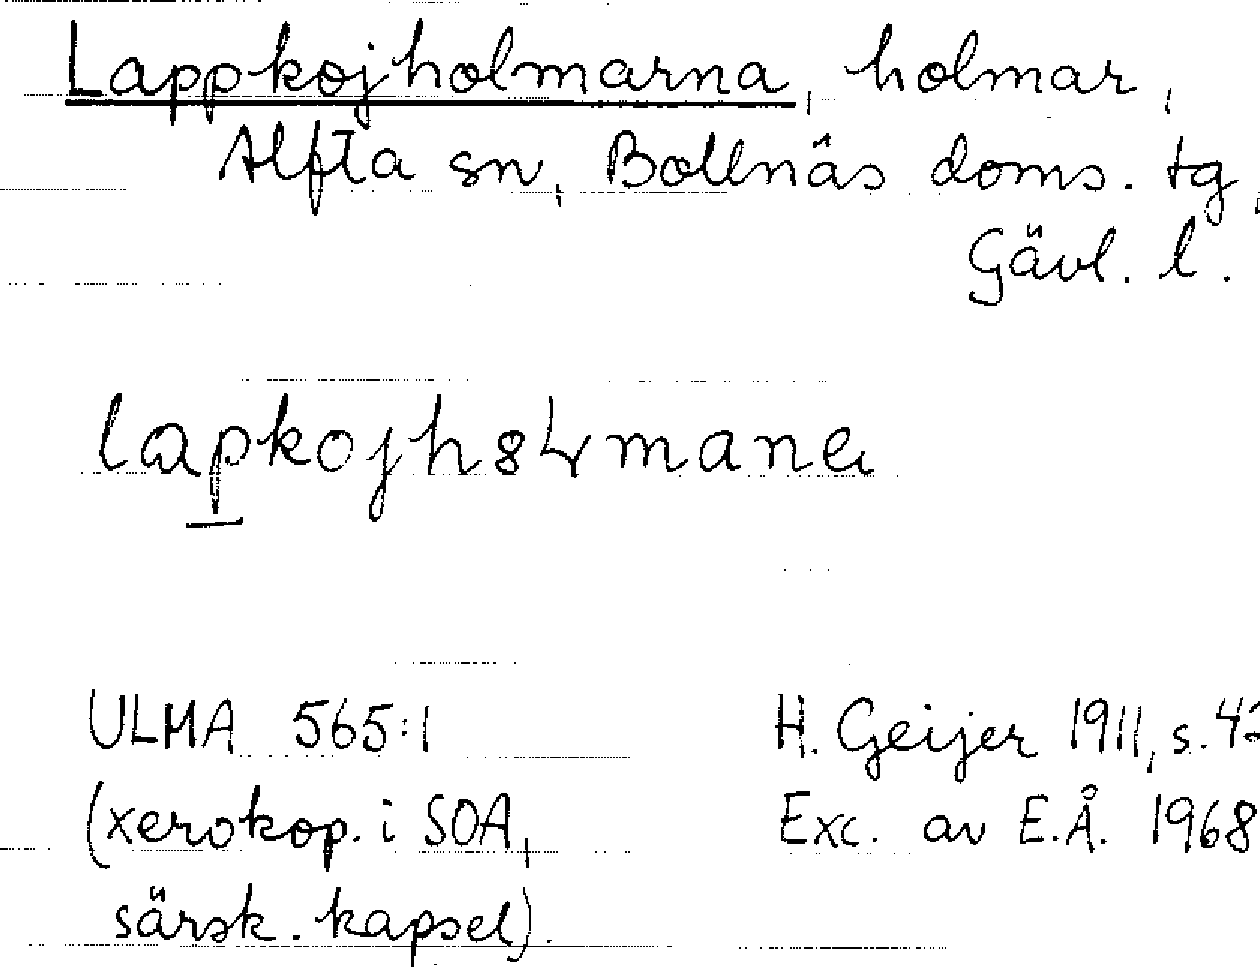 Lappkojholmarna, holmar,
Alfta sn, Bollnäs doms. tg,
Gävl. l.
ULMA 565:1
H. Geijer 1911, s. 42
(xerokop. i SOA,
Exc. av E.Å. 1968
särsk. kapsel).